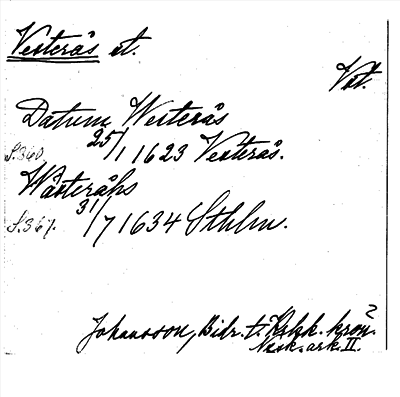 Vesterås st.
Vstm.
Datum Westerås
S.360. 25/1 1623 Vesterås.
Wästeråhs
S.367. 31/7 1634 Sthlm.
Johansson, Bidr. t. Rskk. krön.
Nask. ark. II.